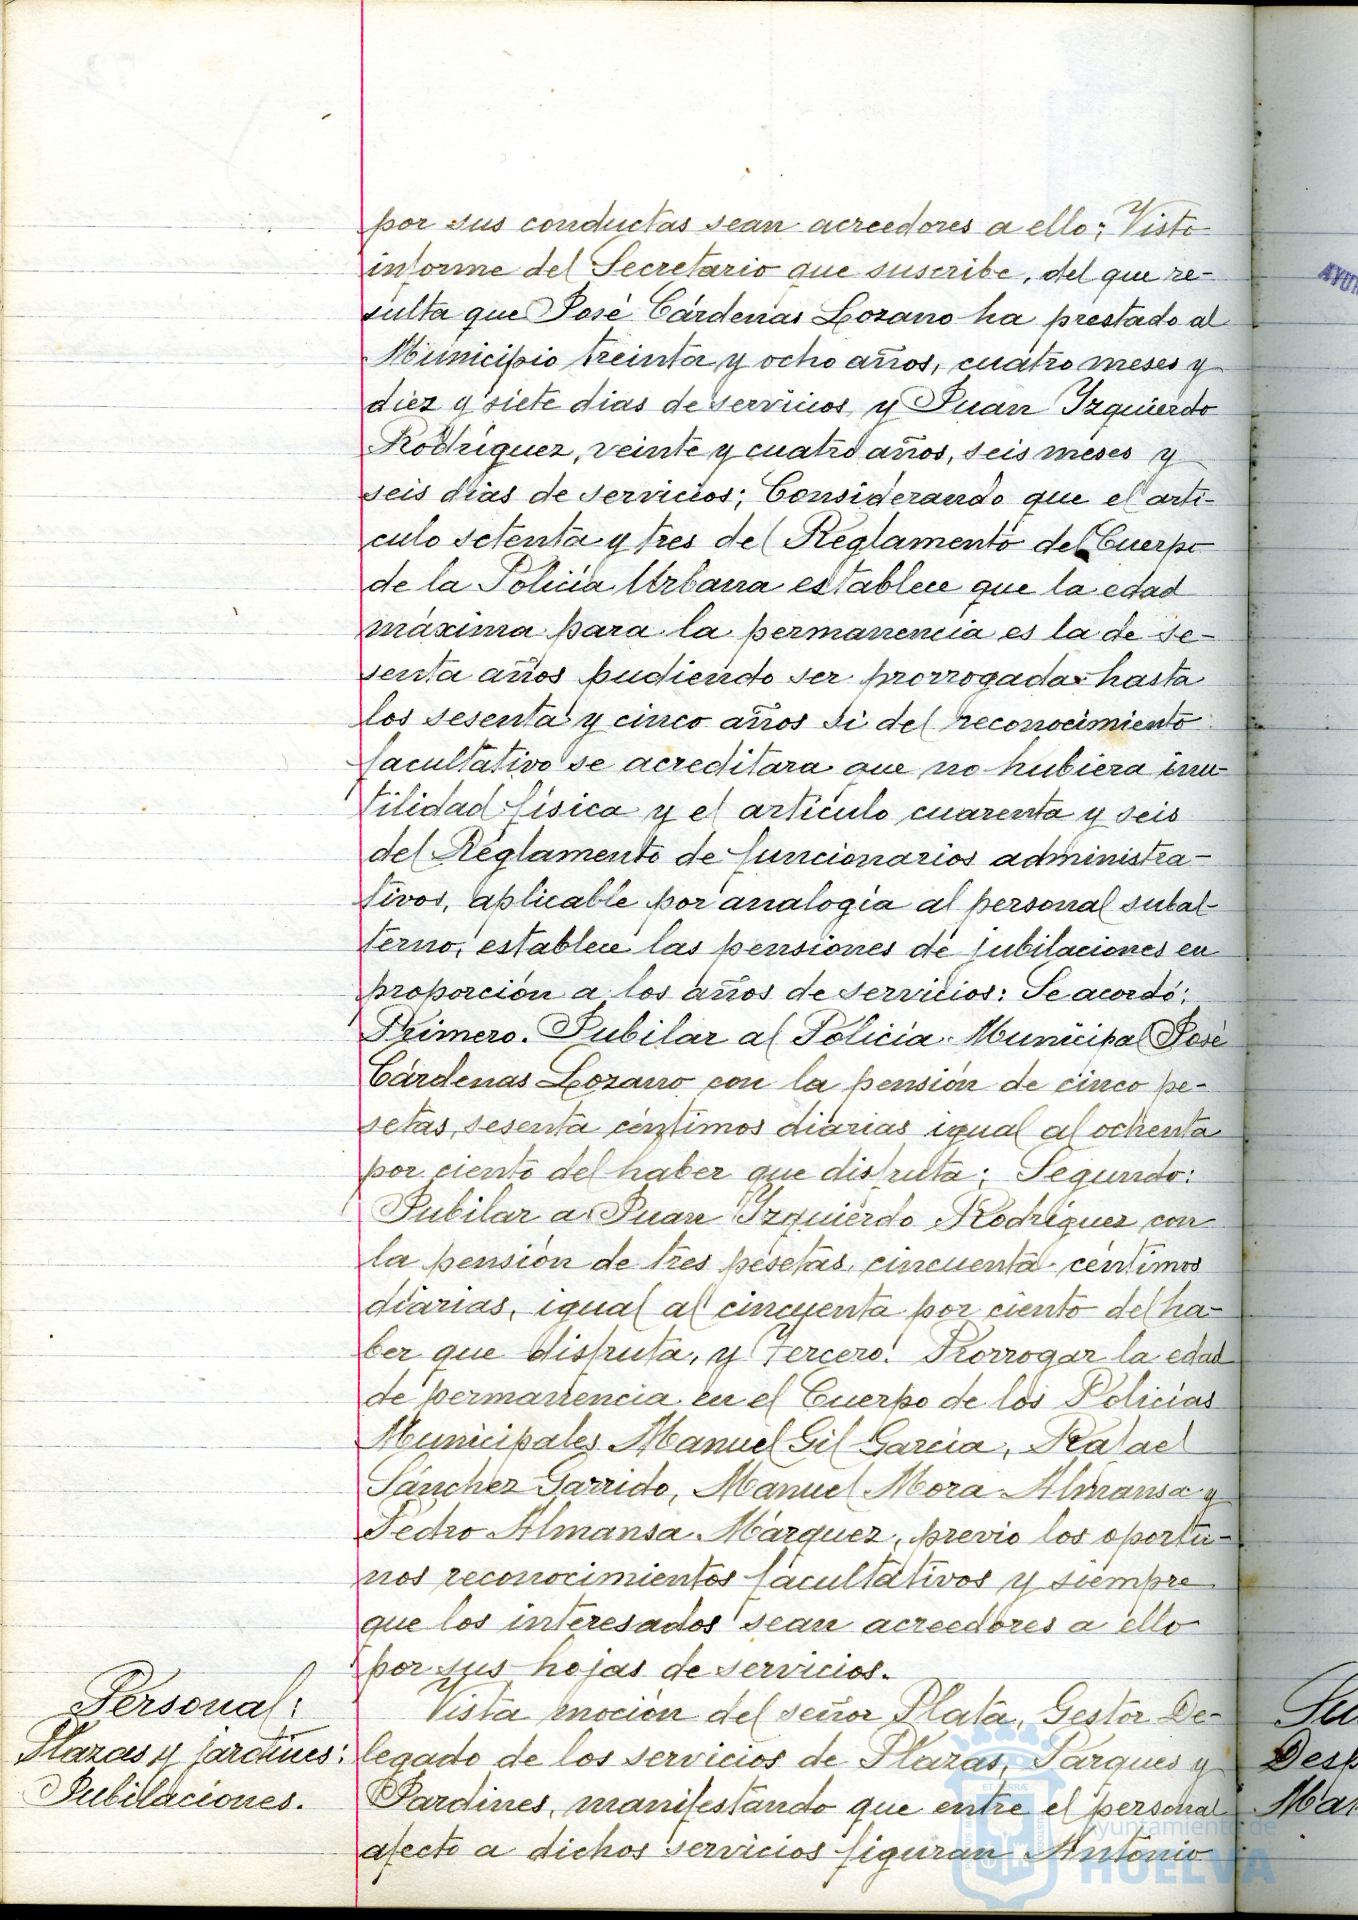 por sus conductas sean acreedores a ello; Visto
informe del Secretario que suscribe, del que re-
sulta que José Cárdenas Lozano ha prestado al
Municipio treinta y ocho años, cuatro meses y
diez y siete dias de servicios y Juan Yzquierdo
Rodríguez, veinte y cuatro años, seis meses y
seis dias de servicios; Considerando que el artí-
culo setenta y tres del Reglamento del Cuerpo
de la Policía Urbana establece que la edad
máxima para la permanencia es la de se-
senta años pudiendo ser prorrogada hasta
los sesenta y cinco años si del reconocimiento
facultativo se acreditara que no hubiera inu-
tilidad física y el artículo cuarenta y seis
del Reglamento de funcionarios administra-
tivos, aplicable por analogía al personal subal-
terno, establece las pensiones de jubilaciones en
proporción a los años de servicios: Se acordó;
Primero. Jubilar al Policía Municipal José
Cárdenas Lozano con la pensión de cinco pe-
setas, sesenta céntimos diarias igual al ochenta
por ciento del haber que disfruta; Segundo:
Jubilar a Juan Yzquierdo Rodríguez con
la pensión de tres pesetas, cincuenta céntimos
diarias, igual al cincuenta por ciento del ha-
ber que disfruta, y Tercero: Prorrogar la edad
de permanencia en el Cuerpo de los Policías
Municipales Manuel Gil García, Rafael
Sánchez Garrido, Manuel Mora Almansa y
Pedro Almansa Márquez, previo los oportu-
nos reconocimientos facultativos y siempre
que los interesados sean acreedores a ello
por sus hojas de servicios.
Personal:
Plazas y jardines:
Jubilaciones.
Vista moción del señor Plata, Gestor De-
legado de los servicios de Plazas, Parques y
Jardines, manifestando que entre el personal
afecto a dichos servicios figuran Antonio
Ayuntamiento de
HUELVA
AYUN
Desp
Mar